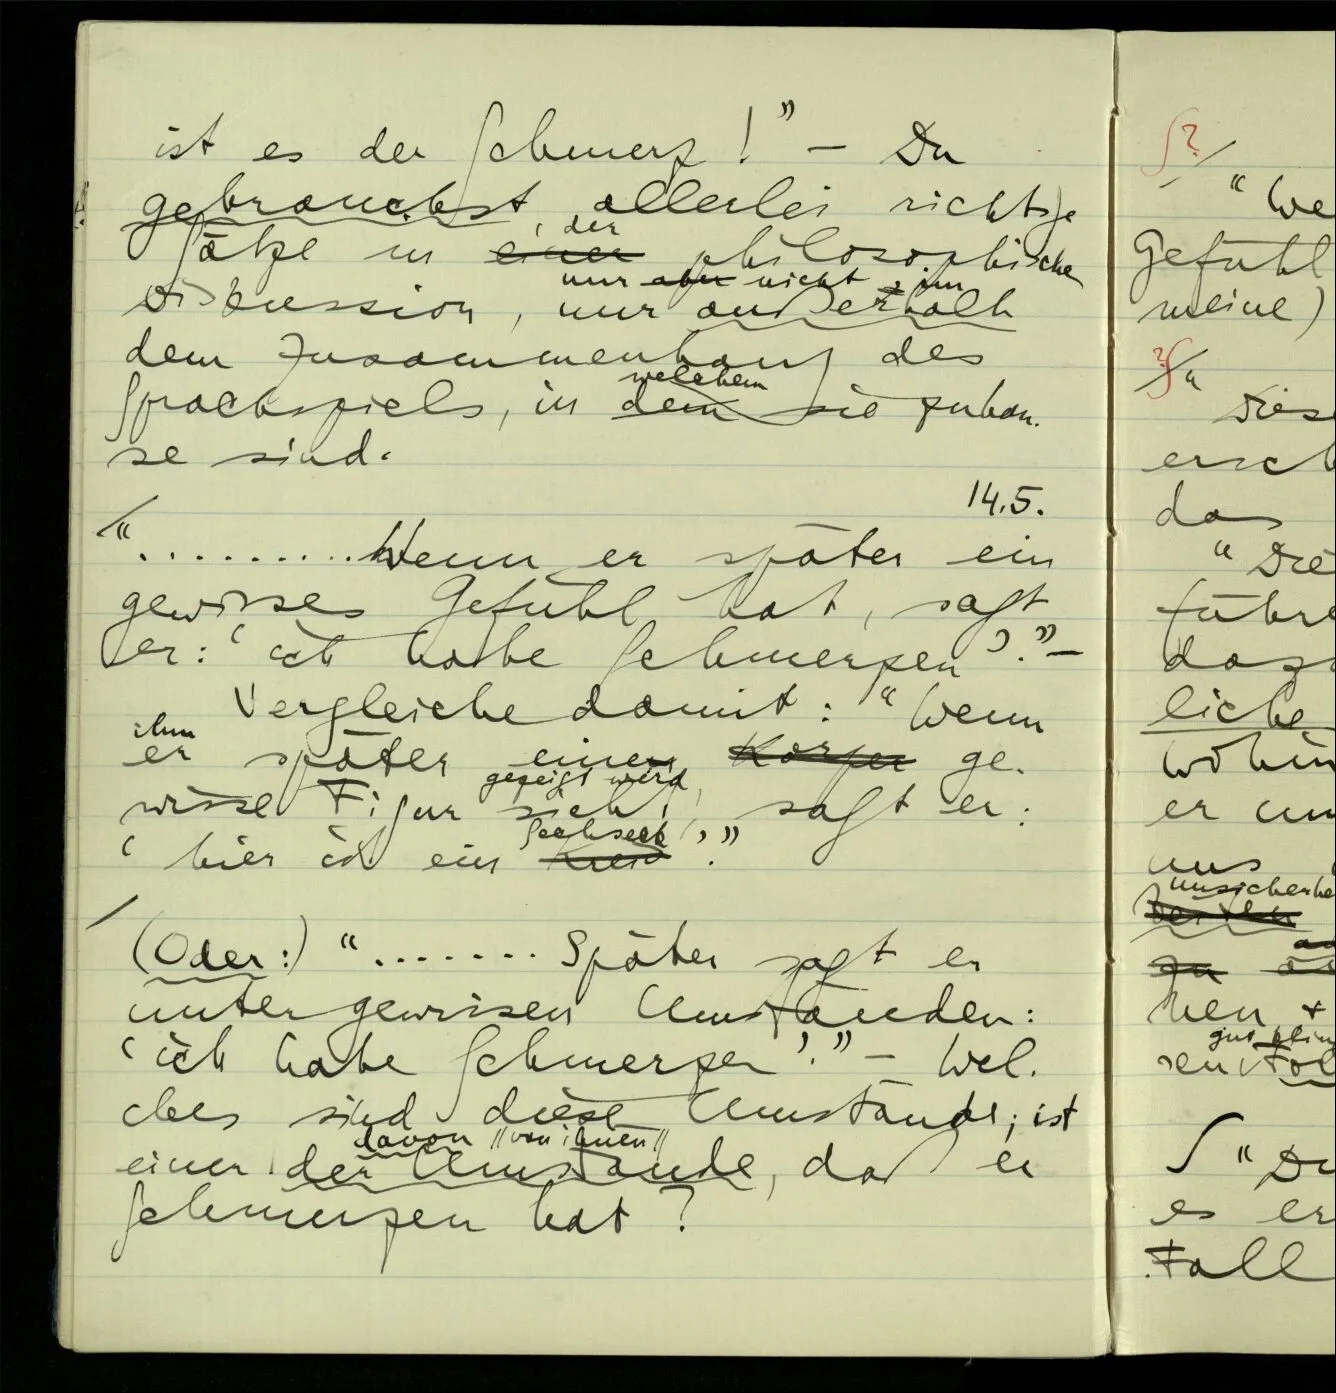 ist es der Schmerz!" – Du
gebrauchst allerlei richtige
der
Sätze in einer philosophischen
nur aber nicht im
Diskussion, nur außerhalb
dem Zusammenhang des
welchem
Sprachspiels, in dem sie zuhau-
se sind.
14.5.
/ "..........Wenn er später ein
gewisses Gefühl hat, sagt
er: 'ich habe Schmerzen'." –
Vergleiche damit: "Wenn
ihm
er später einen Körper ge-
gezeigt wird,
wisse Figur sieht, sagt er:
Sechseck
'hier ist ein'."
/
(Oder:) "....... Später sagt er
unter gewissen Umständen:
'ich habe Schmerzen'." – Wel-
ches sind diese Umstände; ist
davon "von ihnen"
einer der Umstände, daß er
Schmerzen hat?
∫? /
"We
Gefühl
meine)
? ∫ /
"
Dies
ersch
das
"Die
führe
dazu
liche
wohin
er um
uns
unsicherhe
zu
nen +
gut
sen Fol
∫ "Du
es er
Fall